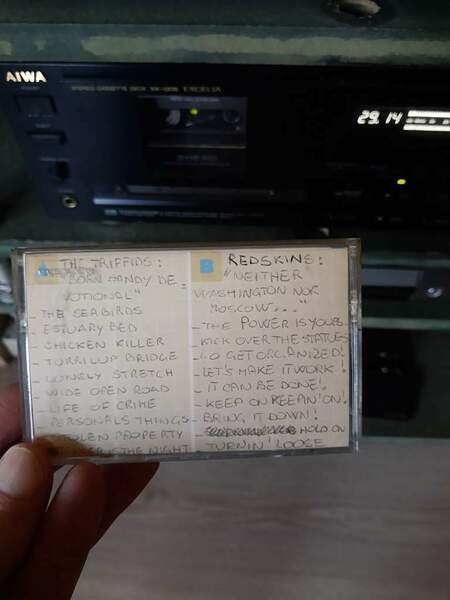 AIWA
STEREO CASSETTE DECK
EXCELIA
29.14
A THE TRIFFIDS:
"BORN SANDY DE=
VOTIONAL"
- THE SEABIRDS
- ESTUARY BED
- CHICKEN KILLER
- TURRILUP BRIDGE
- LONELY STRETCH
- WIDE OPEN ROAD
- LIFE OF CRIME
- PERSONALS THINGS
- STOLEN PROPERTY
IS THE NIGHT
B REDSKINS:
"NEITHER
WASHINGTON NOR
MOSCOW..."
- THE POWER IS YOURS
- KICK OVER THE STATUES
- GO GET ORGANIZED!
- LET'S MAKE IT WORK!
- IT CAN BE DONE!
- KEEP ON KEEPIN' ON!
- BRING IT DOWN!
- HOLD ON
- TURNIN' LOOSE